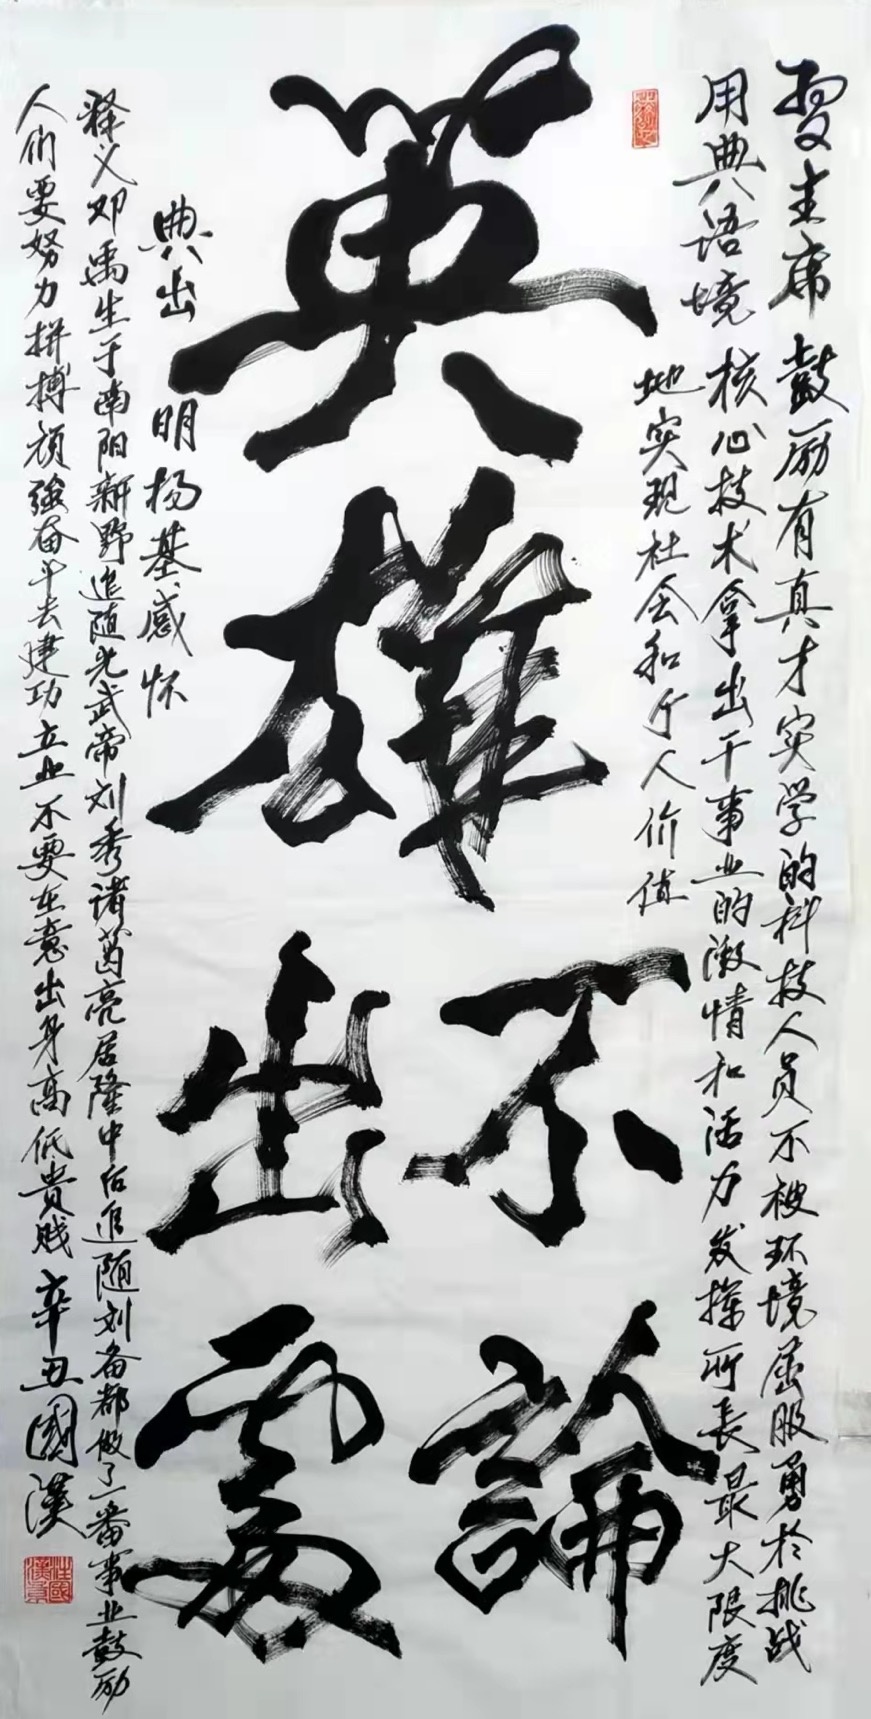 主席 鼓励有真才实学的科技人员不被环境屈服勇於挑战
用典语境 核心技术拿出干事业的激情和活力发挥所長最大限度
地实现社会和个人价值
英雄
不論
出處
典出 明杨基感怀
释义邓禹生于南阳新野追随光武帝刘秀诸葛亮居隆中后追随刘备都做了一番事业鼓励
人们要努力拼搏顽强奋斗去建功立业不要在意出身高低貴贱 辛丑國漢